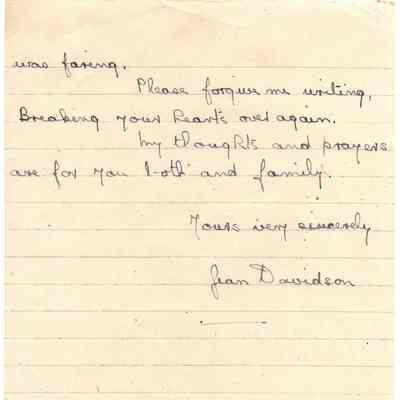 was faring.
Please forgive me writing,
Breaking your hearts over again.
My thoughts and prayers
are for you both and family.
Yours very sincerely
Jean Davidson